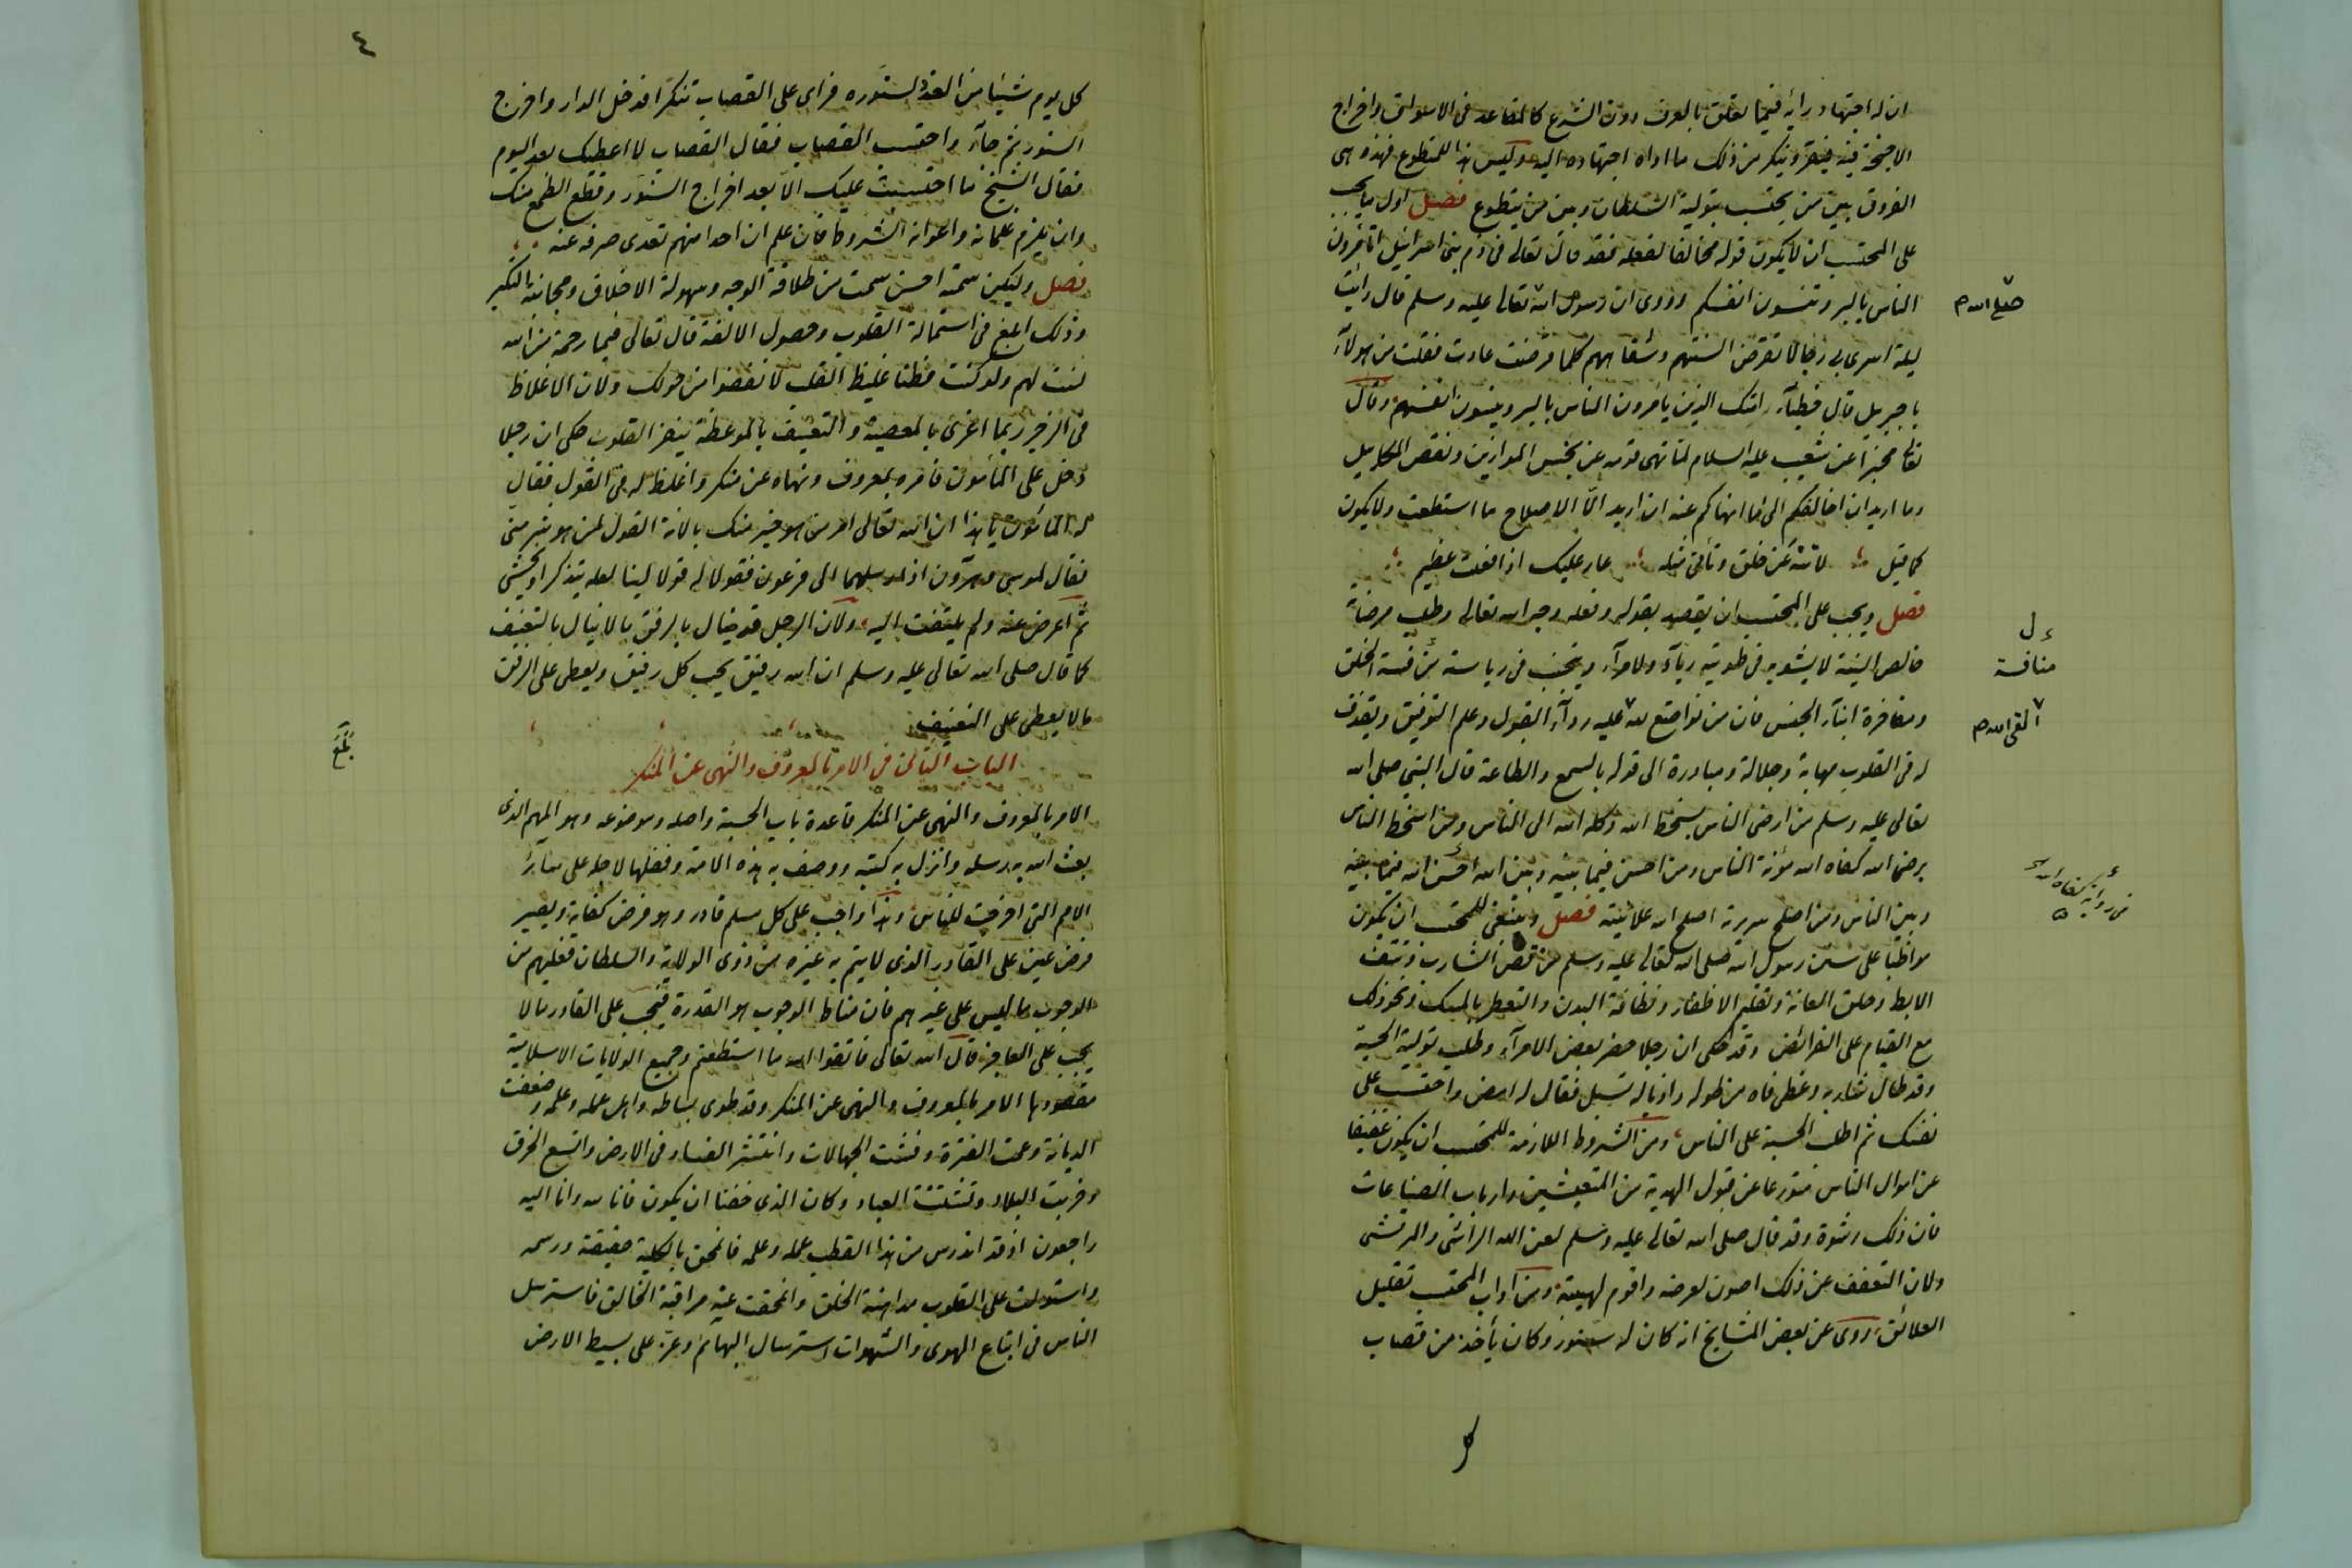 ان له اجتهاد رأيه فيما تعلق بالعرف دون الشرع كالمقاعد في الاسواق واخراج
الاجنحة فيه فيقر وينكر من ذلك ما اداه اجتهاده اليه وليس هذا للمتطوع فهذه هى
الفروق بين من يحتسب بتولية السلطان وبين من يتطوع فصل اول ما يجب
على المحتسب ان لا يكون قوله مخالفا لفعله فقد قال تعالى فى ذم بنى اسرائيل اتأمرون
الناس بالبر وتنسون انفسكم وروى ان رسول الله تعالى عليه وسلم قال رأيت
صلى الله م
ليلة اسرى بى رجالا تقرض السنتهم وشفاههم كلما قرضت عادت فقلت من هولاء
يا جبريل قال خطباء امتك الذين يأمرون الناس بالبر وينسون انفسهم وقال
تعالى مخبرا عن شعيب عليه السلام لما نهى قومه عن بخس الموازين ونقص المكاييل
وما اريد ان اخالفكم الى ما انهاكم عنه ان اريد الا الاصلاح ما استطعت ولا يكون
كما قيل لا تنه عن خلق وتأتى مثله عار عليك اذا فعلت عظيم
فصل ويجب على المحتسب ان يقصد بقوله وفعله وجه الله تعالى وطلب مرضاته
خالص النية لا يشوبه فى طويته رياء ولا مرآء ويجتنب فى رياسته منافسة الخلق
منافسة
ومفاخرة ابناء الجنس فان من تواضع لله عليه رداء القبول وعلم التوفيق ويقذف
القى الله م
له فى القلوب مهابة وجلالة ومبادرة الى قوله بالسمع والطاعة قال النبى صلى الله
تعالى عليه وسلم من ارضى الناس بسخط الله وكله الله الى الناس ومن اسخط الناس
برضى الله كفاه الله مؤنة الناس ومن احسن فيما بينه وبين الله احسن الله فيما بينه
وبين الناس ومن اصلح سريرته اصلح الله علانيته فصل وينبغى للمحتسب ان يكون
مواظبا على سنن رسول الله صلى الله تعالى عليه وسلم من قص الشارب ونتف
الابط وحلق العانة وتقليم الاظفار ونظافة البدن والتعطر بالمسك ونحو ذلك
مع القيام على الفرائض وقد حكى ان رجلا حضر بعض الامرآء وطلب تولية الحسبة
وقد طال شاربه وغطى فاه من طوله واذياله تسبل فقال له امض واحتسب على
نفسك ثم اطلب الحسبة على الناس ومن الشروط اللازمة للمحتسب ان يكون عفيفا
عن اموال الناس متورعا عن قبول الهدية من المتعيشين وارباب الصناعات
فان ذلك رشوة وقد قال صلى الله تعالى عليه وسلم لعن الله الراشى والمرتشى
ولان التعفف عن ذلك اصون لعرضه واقوم لهيبته ومن اداب المحتسب تقليل
العلائق وروى عن بعض المشايخ انه كان له سنور وكان يأخذ من قصاب
٤
كل يوم شيئا من الغدد لسنوره فرأى على القصاب منكرا فدخل الدار واخرج
السنور ثم جآء واحتسب القصاب فقال القصاب لا اعطيك بعد اليوم
فقال الشيخ ما احتسبت عليك الا بعد اخراج السنور وقطع الطمع منك
وان يلزم غلمانه واعوانه الشروط فان علم ان احدا منهم تعدى صرفه عنه
فصل وليكن سمته احسن سمت من طلاقة الوجه وسهولة الاخلاق ومجانبة بالتكبر
وذلك ابلغ فى استمالة القلوب وحصول الالفة قال تعالى فبما رحمة من الله
لنت لهم ولو كنت فظا غليظ القلب لا نفضوا من حولك ولان الاغلاظ
فى الزجر ربما اغرى بالمعصية والتعنيف بالموعظة ينفر القلوب حكى ان رجلا
دخل على المأمون فامره بمعروف ونهاه عن منكر واغلظ له فى القول فقال
له المأمون يا هذا ان الله تعالى امر من هو خير منك بالانة القول لمن هو شر منى
فقال لموسى وهرون اذ ارسلهما الى فرعون فقولا له قولا لينا لعله يتذكر او يخشى
ثم اعرض عنه ولم يلتفت اليه ولان الرجل قد ينال بالرفق ما لا ينال بالتعنيف
كما قال صلى الله تعالى عليه وسلم ان الله رفيق يحب كل رفيق ويعطى على الرفق
ما لا يعطى على التعنيف
بلغ
الباب الثانى فى الامر بالمعروف والنهى عن المنكر
الامر بالمعروف والنهى عن المنكر قاعدة باب الحسبة واصله وموضوعه وهو المهم الذى
بعث الله به رسله وانزل به كتبه ووصف به هذه الامة وفضلها لاجله على سائر
الامم التى اخرجت للناس وهذا واجب على كل مسلم قادر وهو فرض كفاية ويصير
فرض عين على القادر الذى لا يتم به غيره من ذوى الولاية والسلطان فعليهم من
الوجوب ما ليس على غيرهم فان مناط الوجوب هو القدرة فيجب على القادر ما لا
يجب على العاجز قال الله تعالى فاتقوا الله ما استطعتم وجميع الولايات الاسلامية
مقصودها الامر بالمعروف والنهى عن المنكر وقد طوى بساطه واهمل عمله وعلمه وضعفت
الديانة وعمت الفترة وفشت الجهالات وانتشر الفساد فى الارض واتسع الخرق
وخربت البلاد وتشتتت العباد وكان الذى خفنا ان يكون فانا لله وانا اليه
راجعون اذ قد اندرس من هذا القطب عمله وعلمه فانمحق بالكلية حقيقته ورسمه
واستولت على القلوب مداهنة الخلق وانمحقت عنه مراقبة الخالق فاسترسل
الناس فى اتباع الهوى والشهوات استرسال البهائم وعز على بسيط الارض